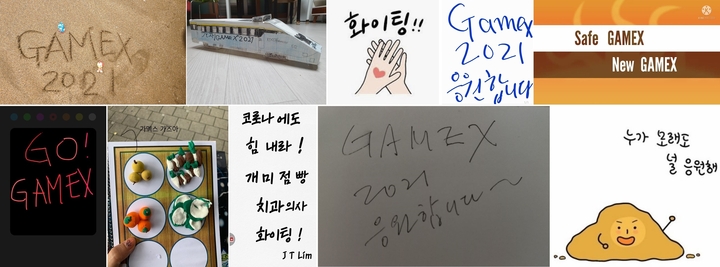 GAMEX
2021
GAMEX 2021
화이팅!!
Gamex
2021
응원합니다
Safe GAMEX
New GAMEX
GO!
GAMEX
가멕스 가즈아
코로나에도
힘 내라!
개미 점빵
치과의사
화이팅!
J T Lim
GAMEX
2021
응원합니다~
누가 모래도
널 응원해